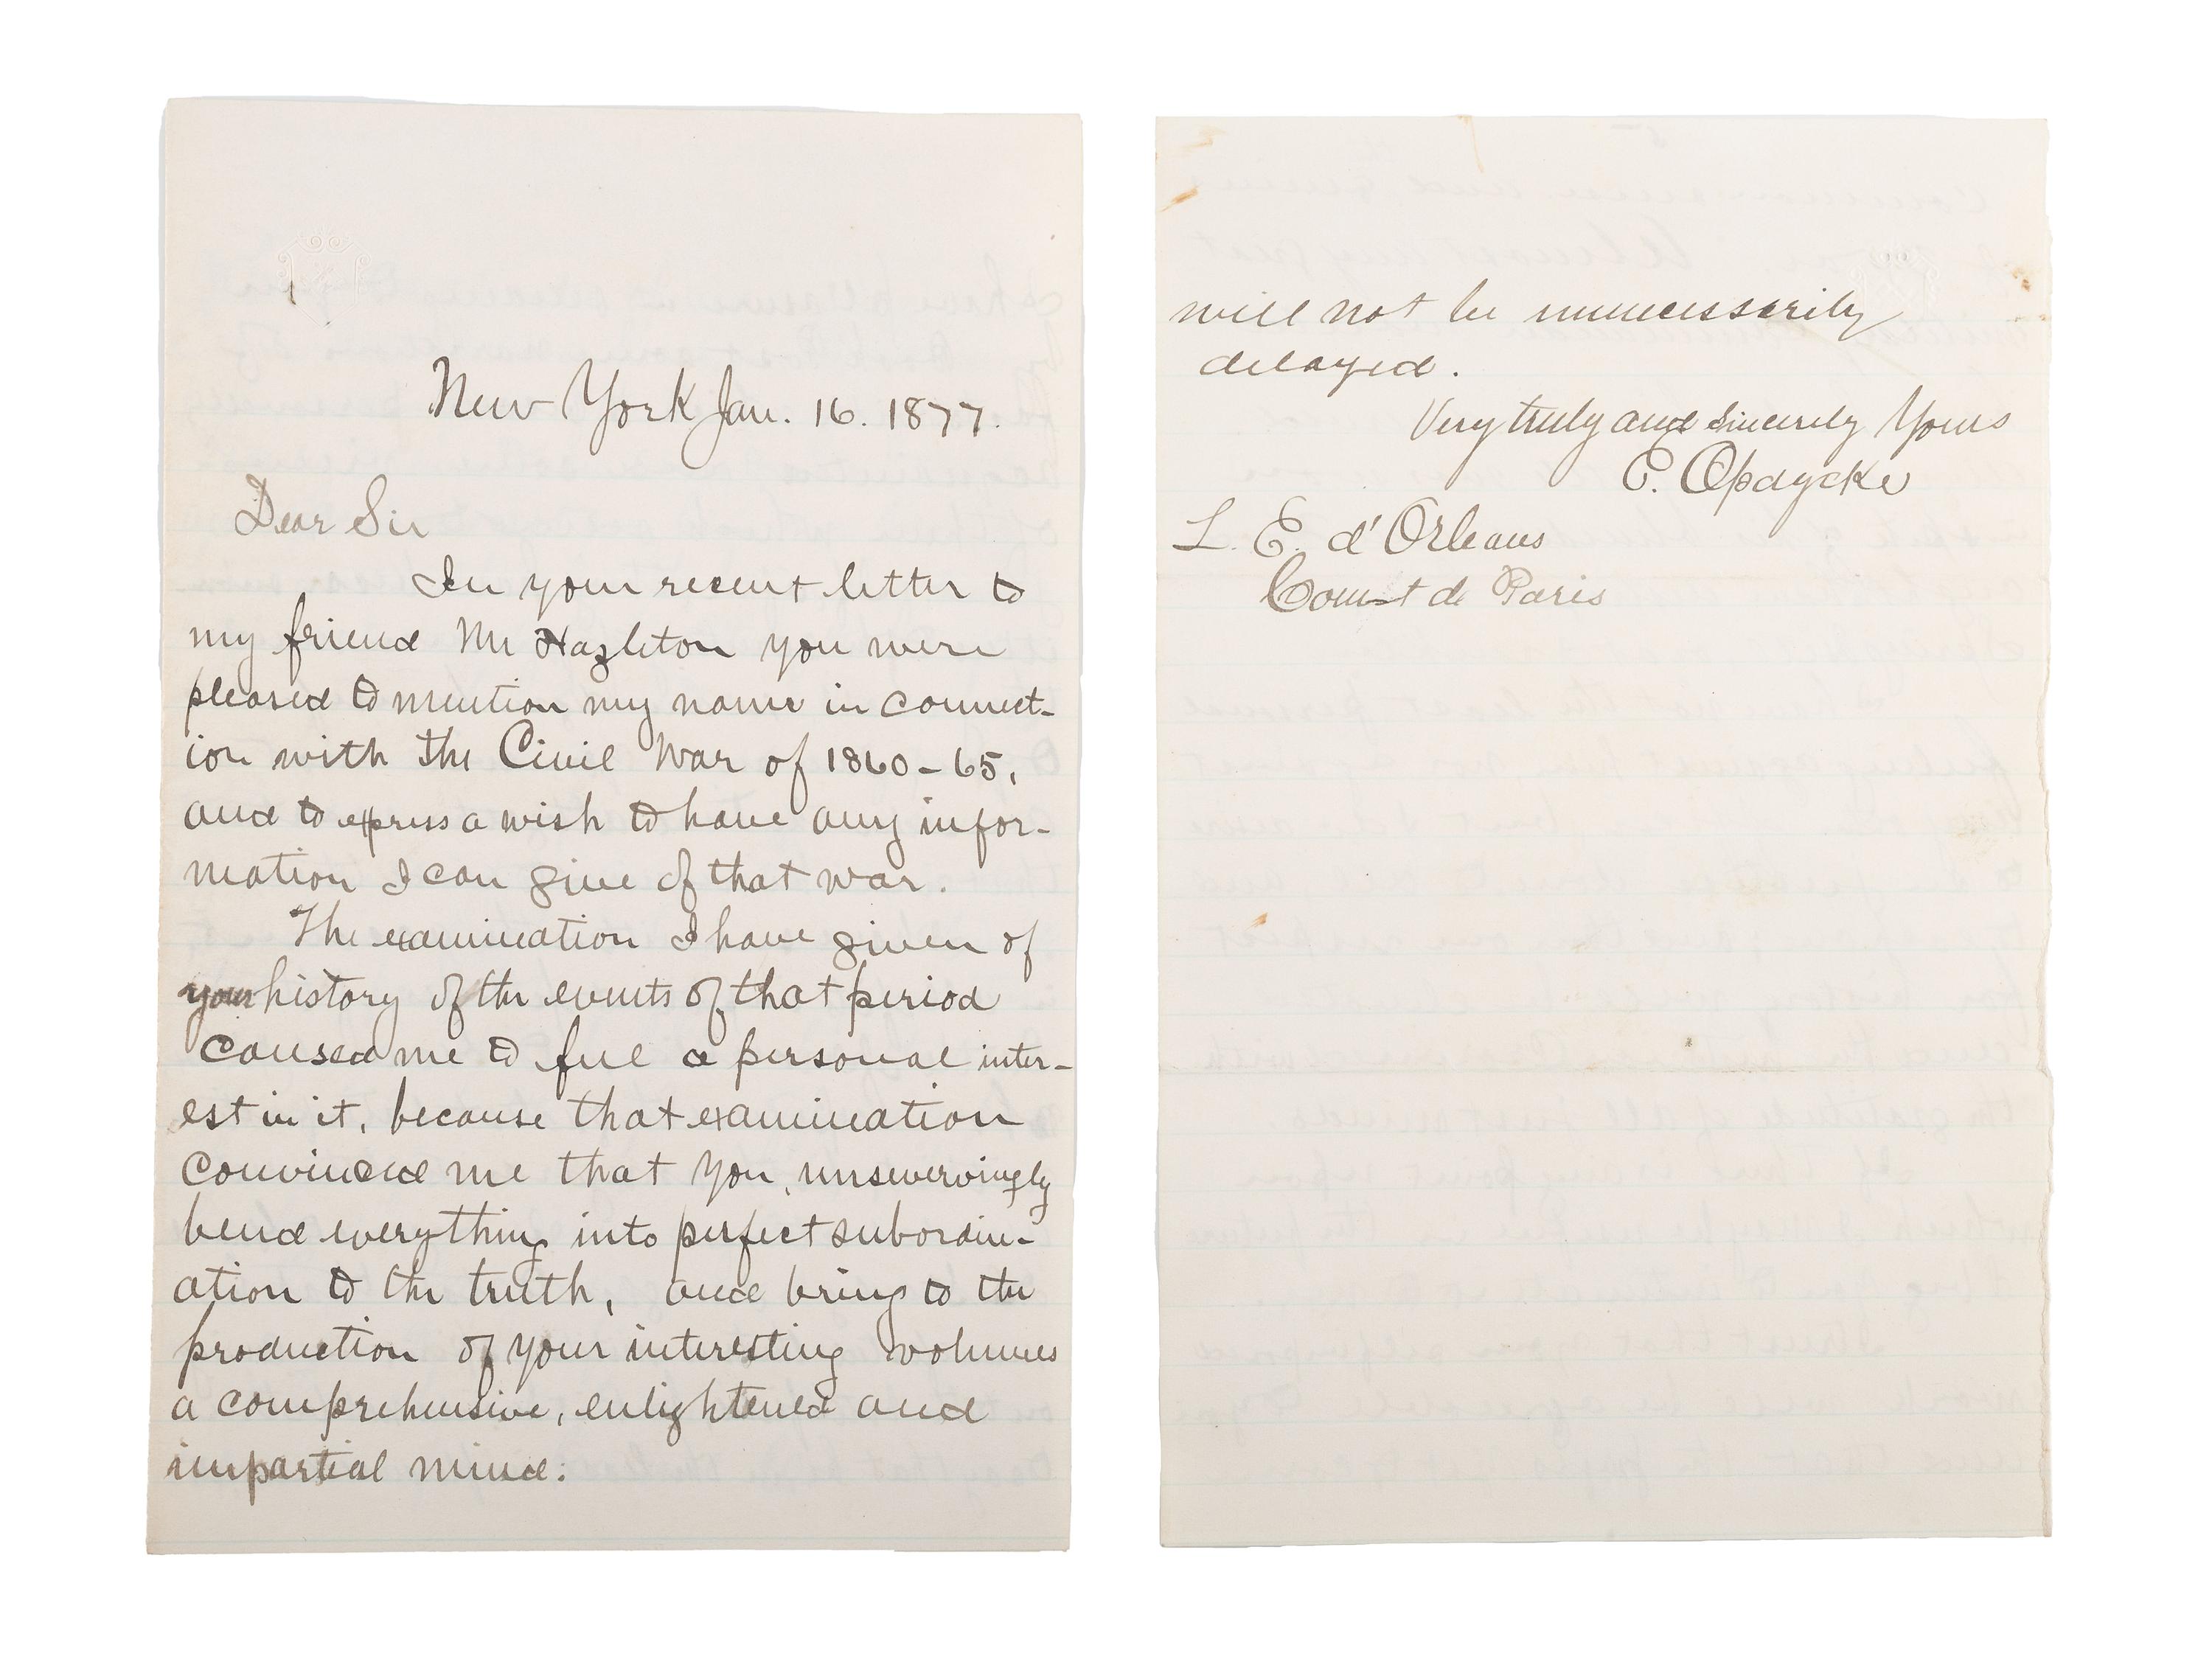 New York Jan. 16. 1877.
Dear Sir
In your recent letter to
my friend Mr Hazleton you were
pleased to mention my name in connect-
ion with the Civil War of 1860-65,
and to express a wish to have any infor-
mation I can give of that war.
The examination I have given of
your history of the events of that period
caused me to feel a personal inter-
est in it, because that examination
convinced me that you, unswervingly
bend everything into perfect subordin-
ation to the truth, and bring to the
production of your interesting volumes
a comprehensive, enlightened and
impartial mind.
will not be unnecessarily
delayed.
Very truly and Sincerely Yours
E. Opdycke
L. E. d'Orleans
Count de Paris